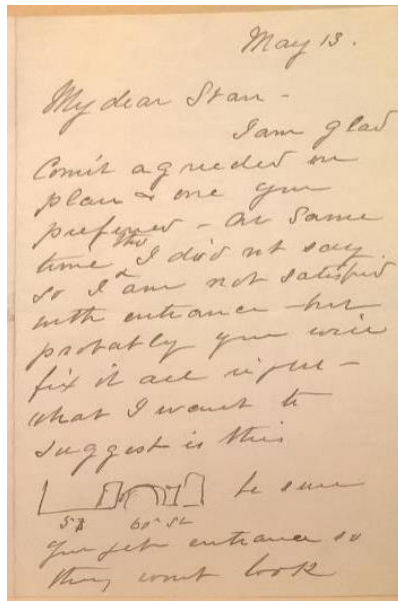 May 13.
My dear Stan -
I am glad
Comit agreeded on
plan & one you
preferred - At same
time tho I did nt say
so I am not satisfied
with entrance - but
probably you will
fix it all right -
what I want to
suggest is this
be sure
60 St
you get entrance so
they wont look